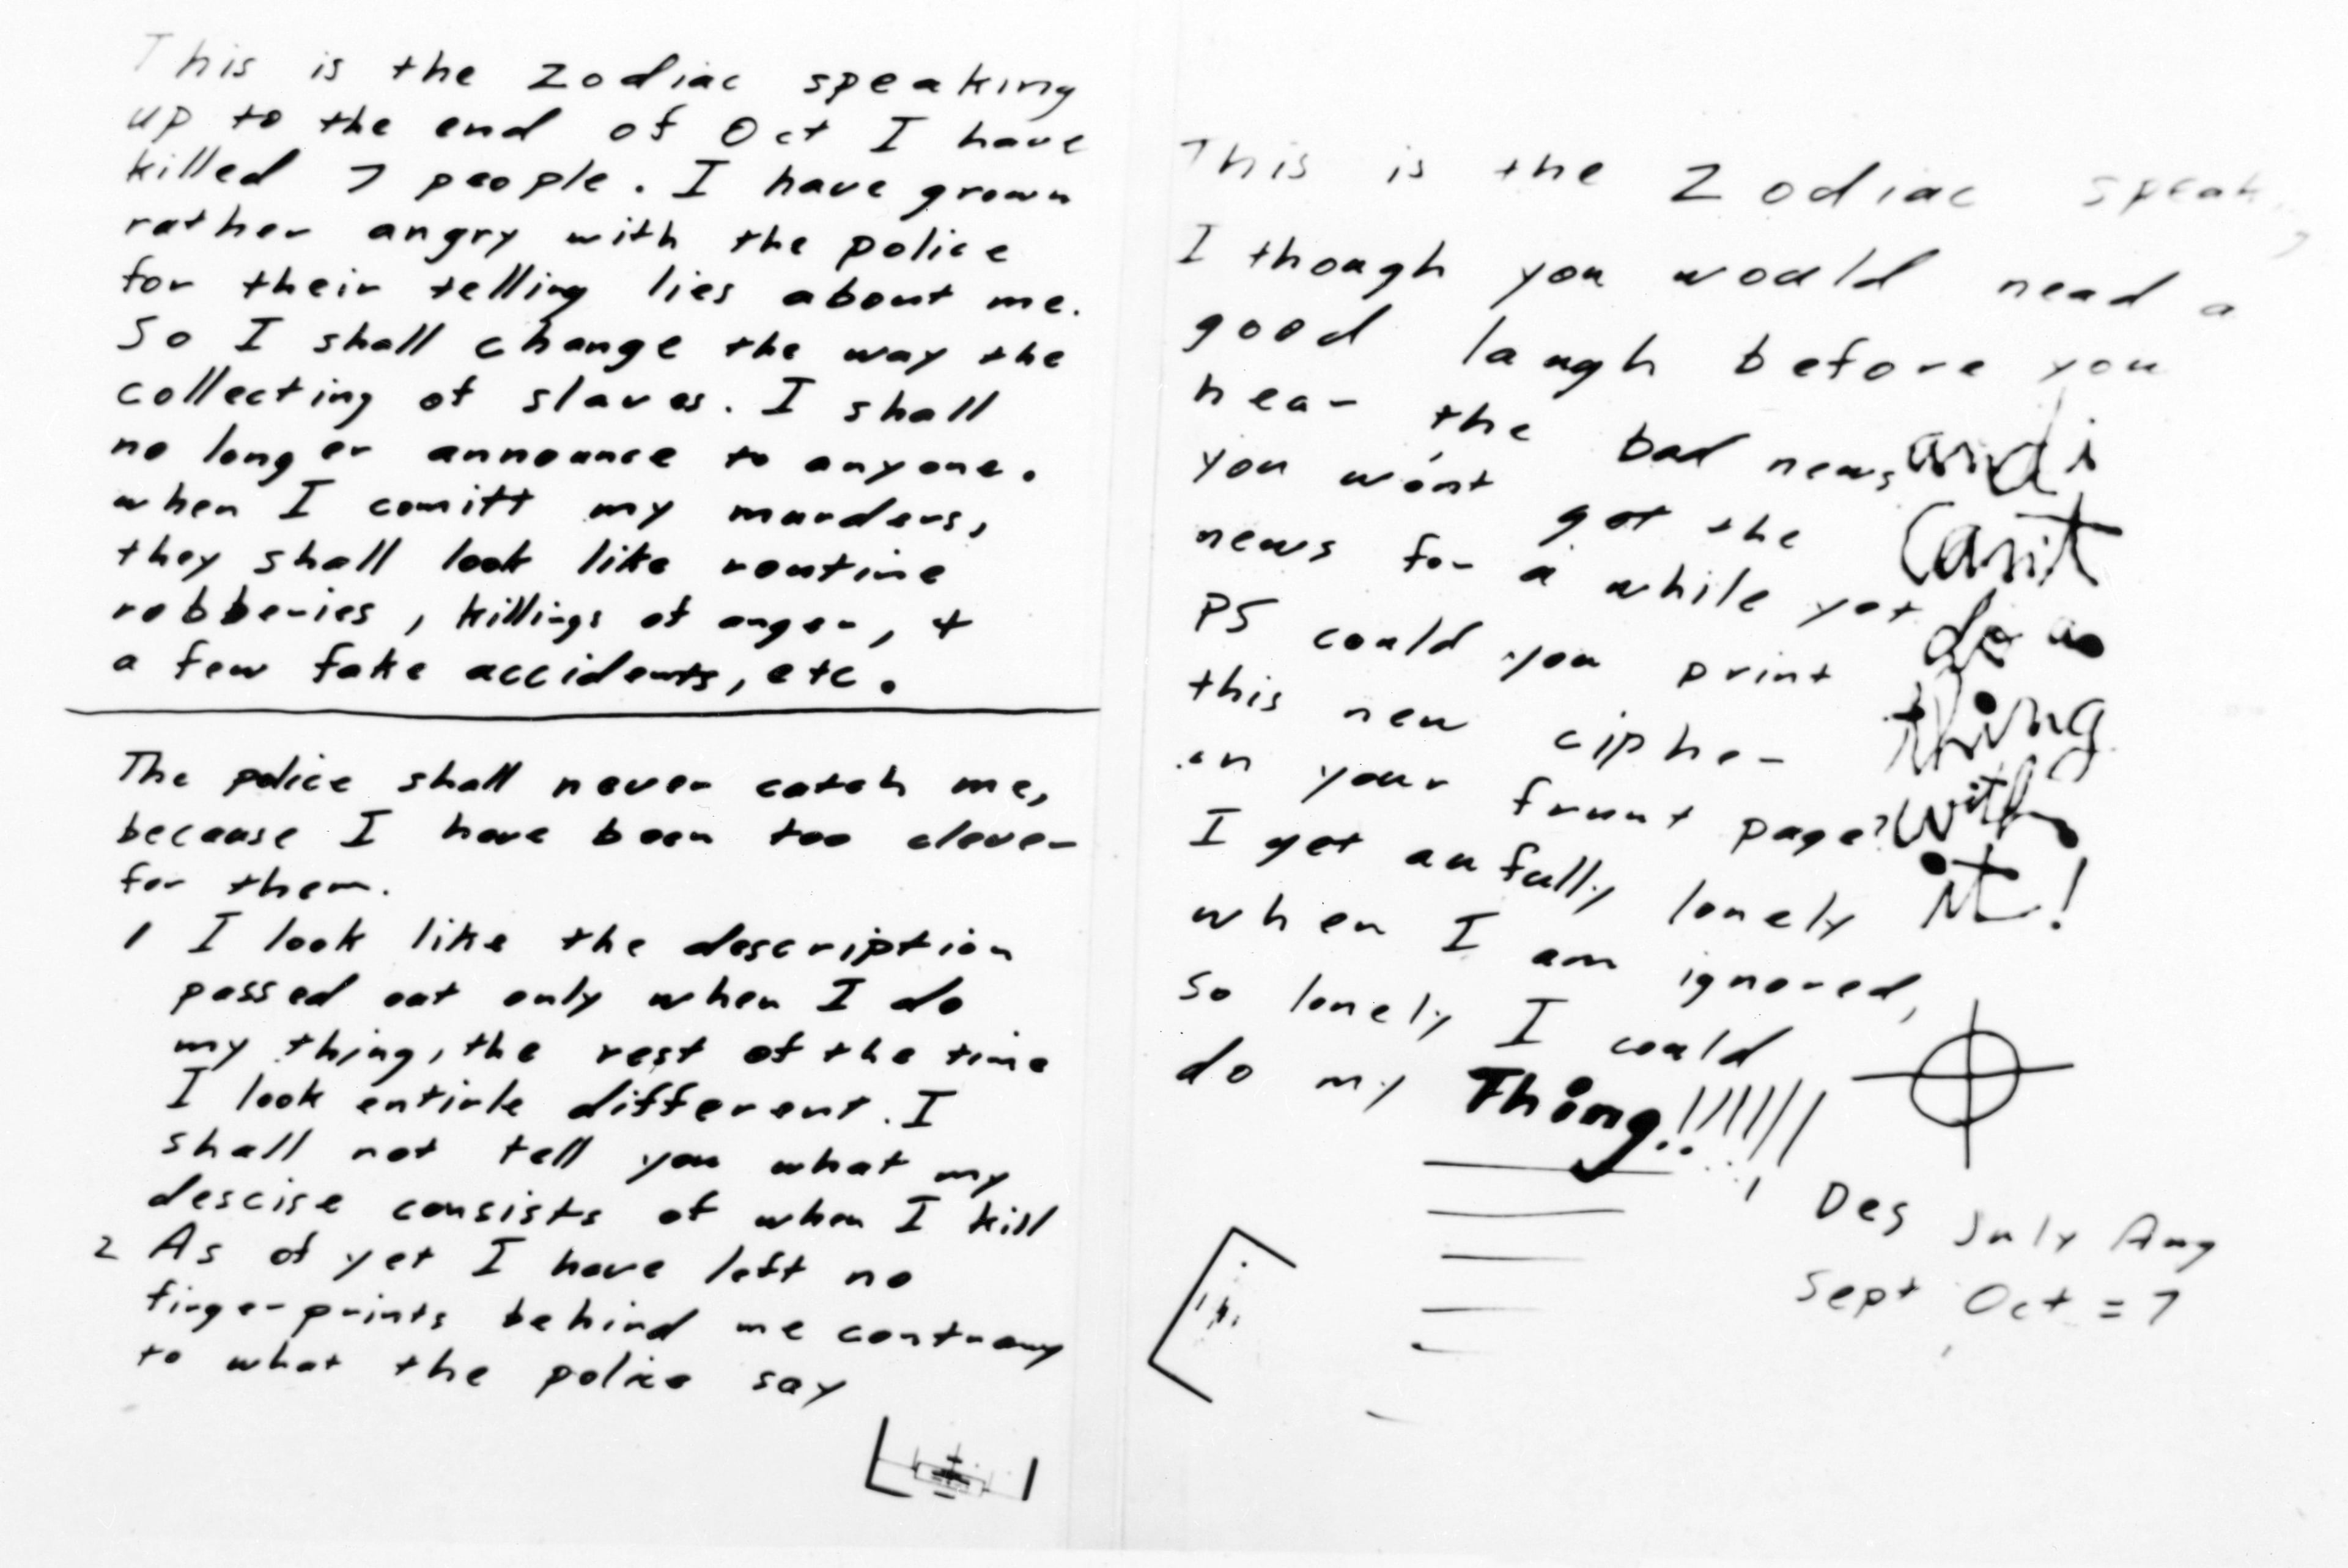 This is the Zodiac speaking
up to the end of Oct I have
killed 7 people. I have grown
rather angry with the police
for their telling lies about me.
So I shall change the way the
collecting of slaves. I shall
no longer announce to anyone.
when I comitt my murders,
they shall look like routine
robberies, killings of anger, +
a few fake accidents, etc.
The police shall never catch me,
because I have been too clever
for them.
1 I look like the description
passed out only when I do
my thing, the rest of the time
I look entirle different. I
shall not tell you what my
descise consists of when I kill
2 As of yet I have left no
fingerprints behind me contrary
to what the police say
This is the Zodiac speaking
I though you would nead a
good laugh before you
hear the bad news
you won't get the
news for a while yet
PS could you print
this new cipher
on your frunt page?
I get aufully lonely
when I am ignored,
so lonely I could
do my Thing!!!!!!
and i
can't
do a
thing
with
it!
Des July Aug
Sept Oct = 7